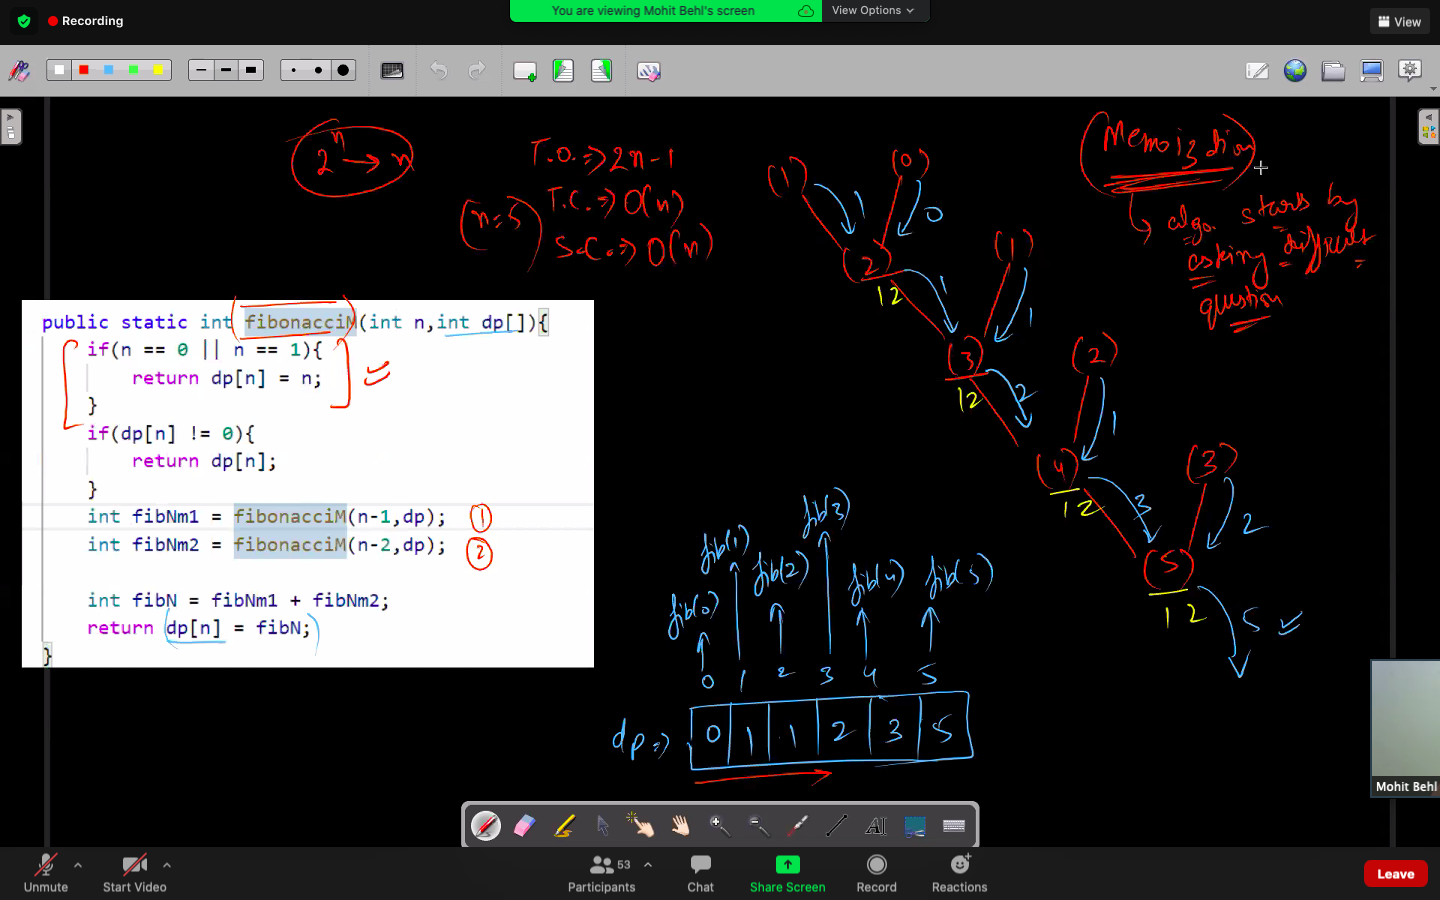 Recording
You are viewing Mohit Behl's screen
View Options
View
2^n → n
T.O. => 2n-1
T.C. => O(n)
(n=5)
S.C. => O(n)
Memoization
↳ algo. starts by
asking different
question
public static int fibonacciM(int n,int dp[]){
if(n == 0 || n == 1){
return dp[n] = n;
}
if(dp[n] != 0){
return dp[n];
}
int fibNm1 = fibonacciM(n-1,dp); 1
int fibNm2 = fibonacciM(n-2,dp); 2
int fibN = fibNm1 + fibNm2;
return dp[n] = fibN;
}
(1) (0)
1 0
(2) (1)
12 1 1
(3) (2)
12 2 1
(4) (3)
12 3 2
(5)
12 5
fib(0) fib(1) fib(2) fib(3) fib(4) fib(5)
0 1 2 3 4 5
dp => 0 1 1 2 3 5
Mohit Behl
AI
53
Unmute
Start Video
Participants
Chat
Share Screen
Record
Reactions
Leave